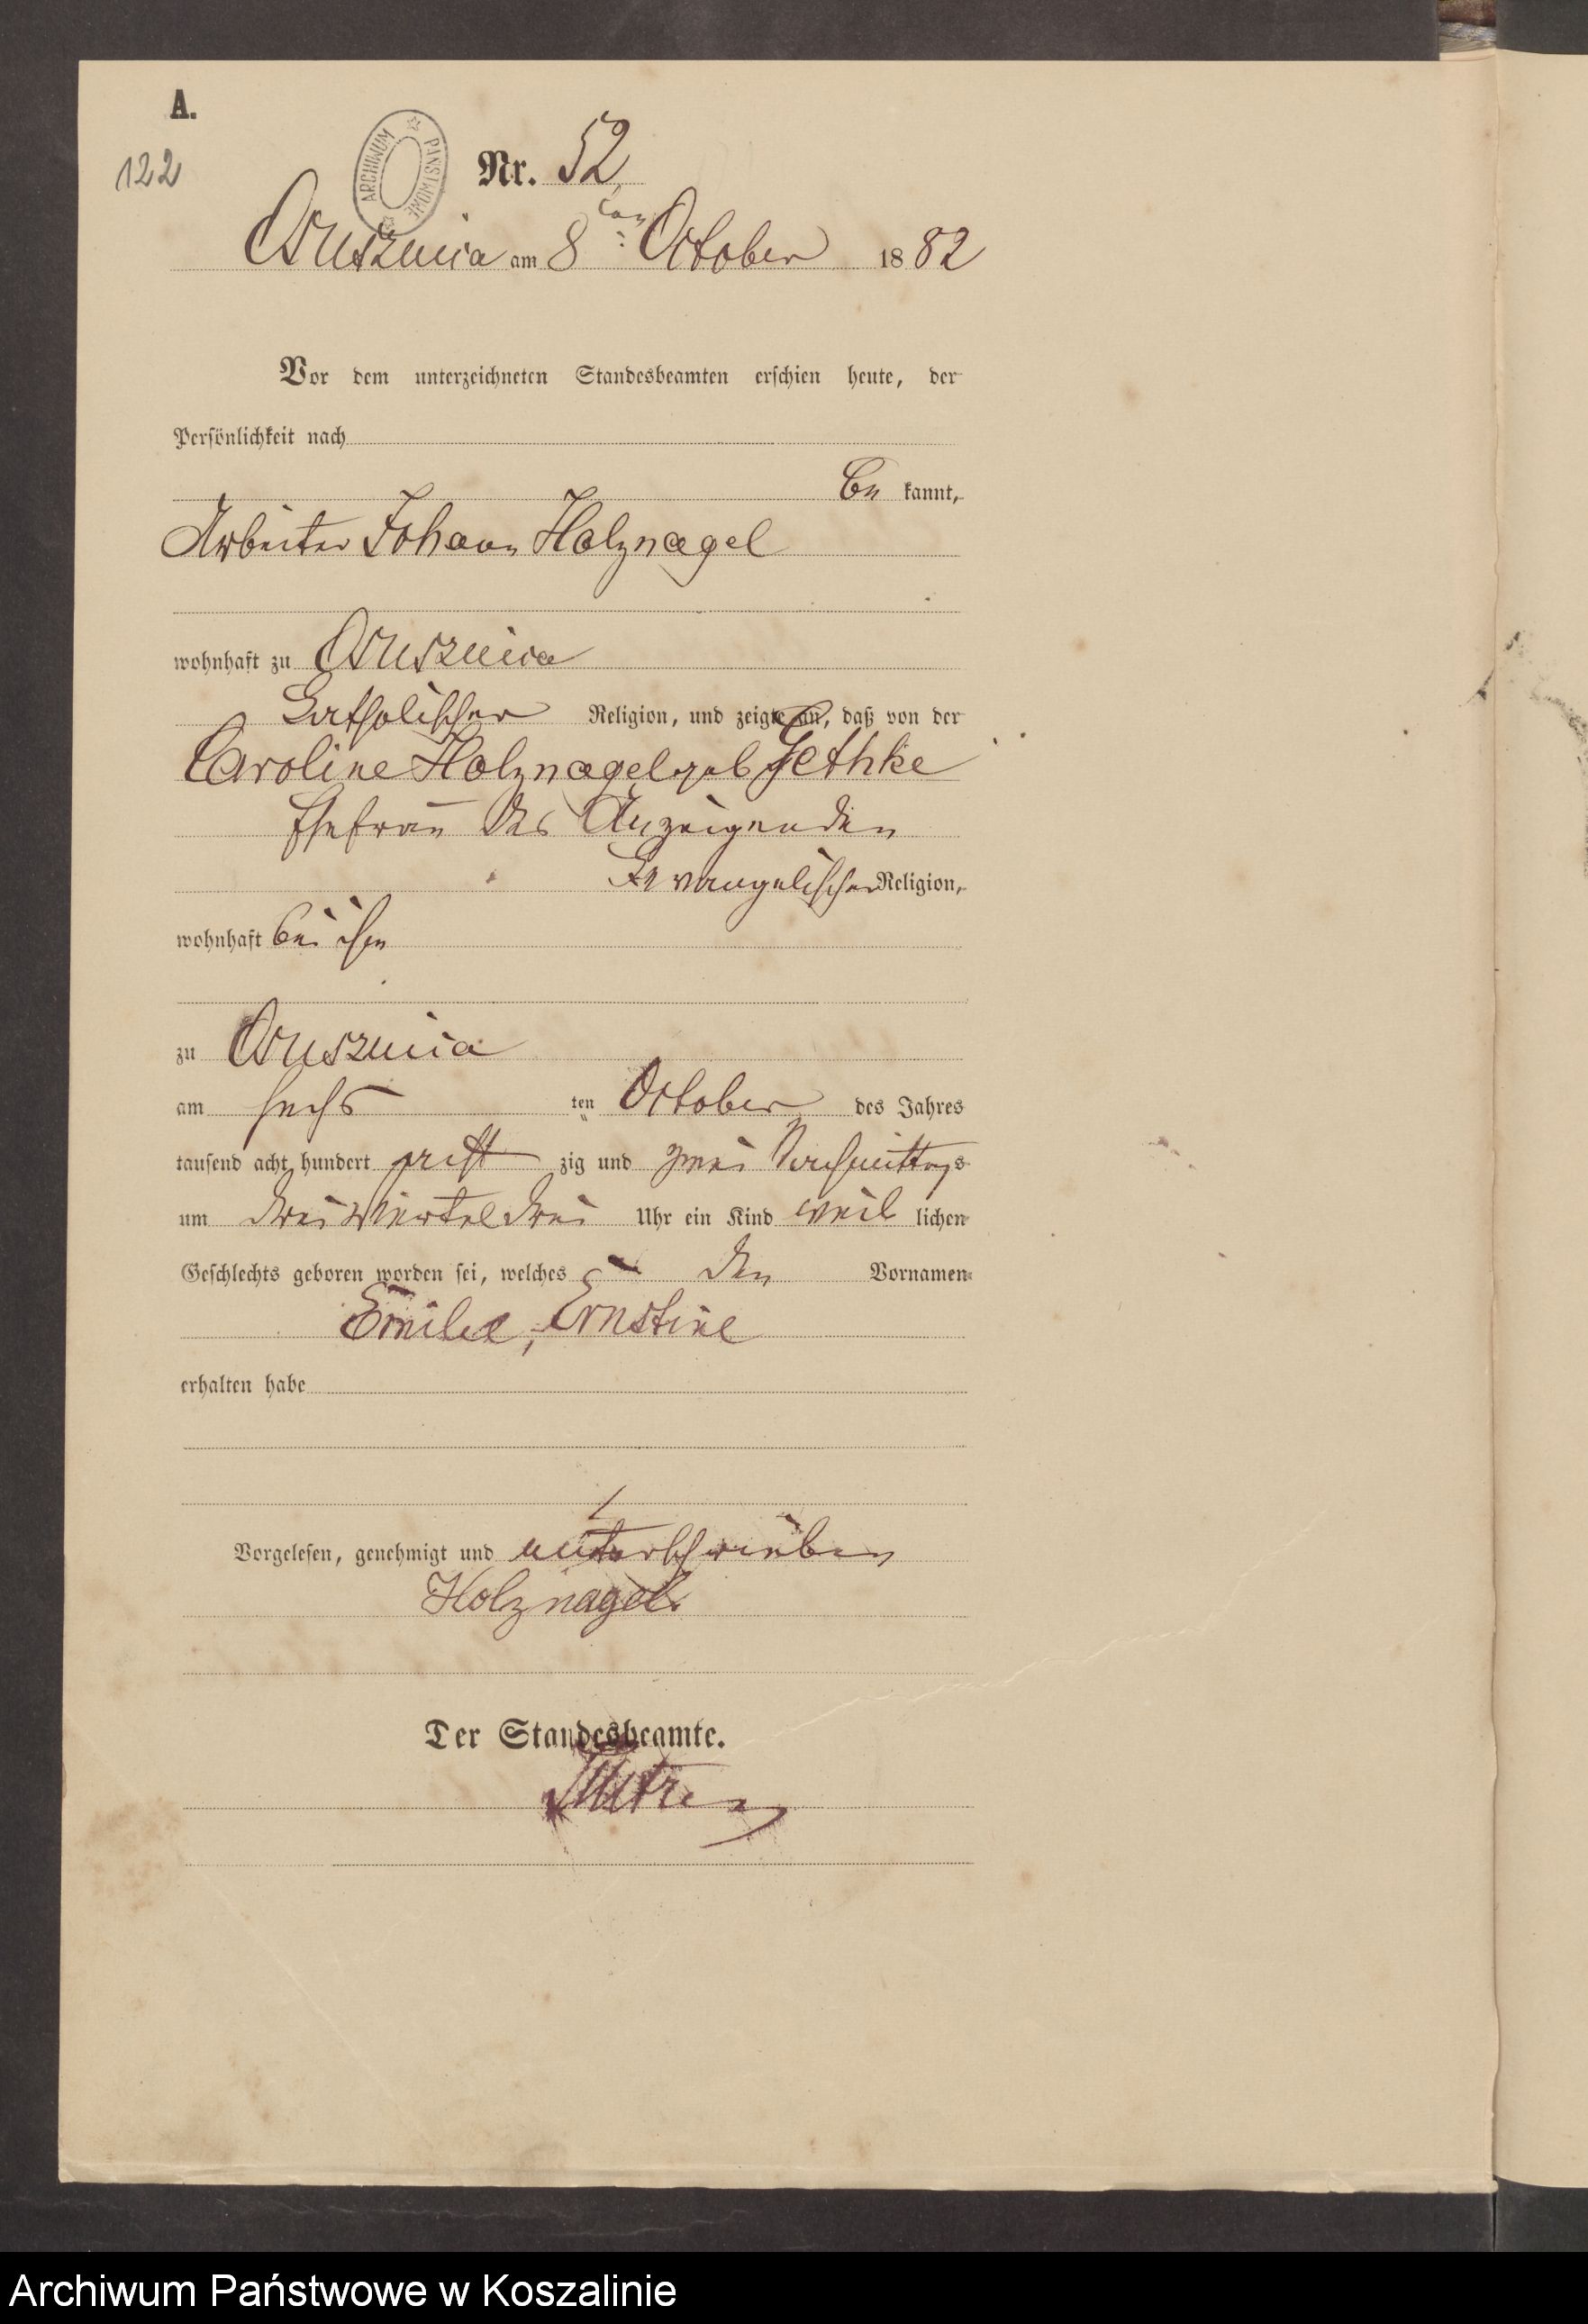 A.
122
ARCHIWUM PAŃSTWOWE
Nr. 52
Ossusznica am 8ten October 1882
Vor dem unterzeichneten Standesbeamten erschien heute, der
Persönlichkeit nach
be kannt,
Arbeiter Johann Holznagel
wohnhaft zu
katholischer Religion, und zeigte an, daß von der
Caroline Holznagel geb Gethke
Ehefrau des Anzeigenden
Evangelischer Religion,
wohnhaft bei ihm
zu
am sechs ten October des Jahres
tausend acht hundert acht zig und zwei Nachmittags
um drei Viertel drei Uhr ein Kind weib lichen
Geschlechts geboren worden sei, welches den Vornamen
Emilie, Ernstine
erhalten habe
Vorgelesen, genehmigt und unterschrieben
Holznagel
Der Standesbeamte.
Archiwum Państwowe w Koszalinie